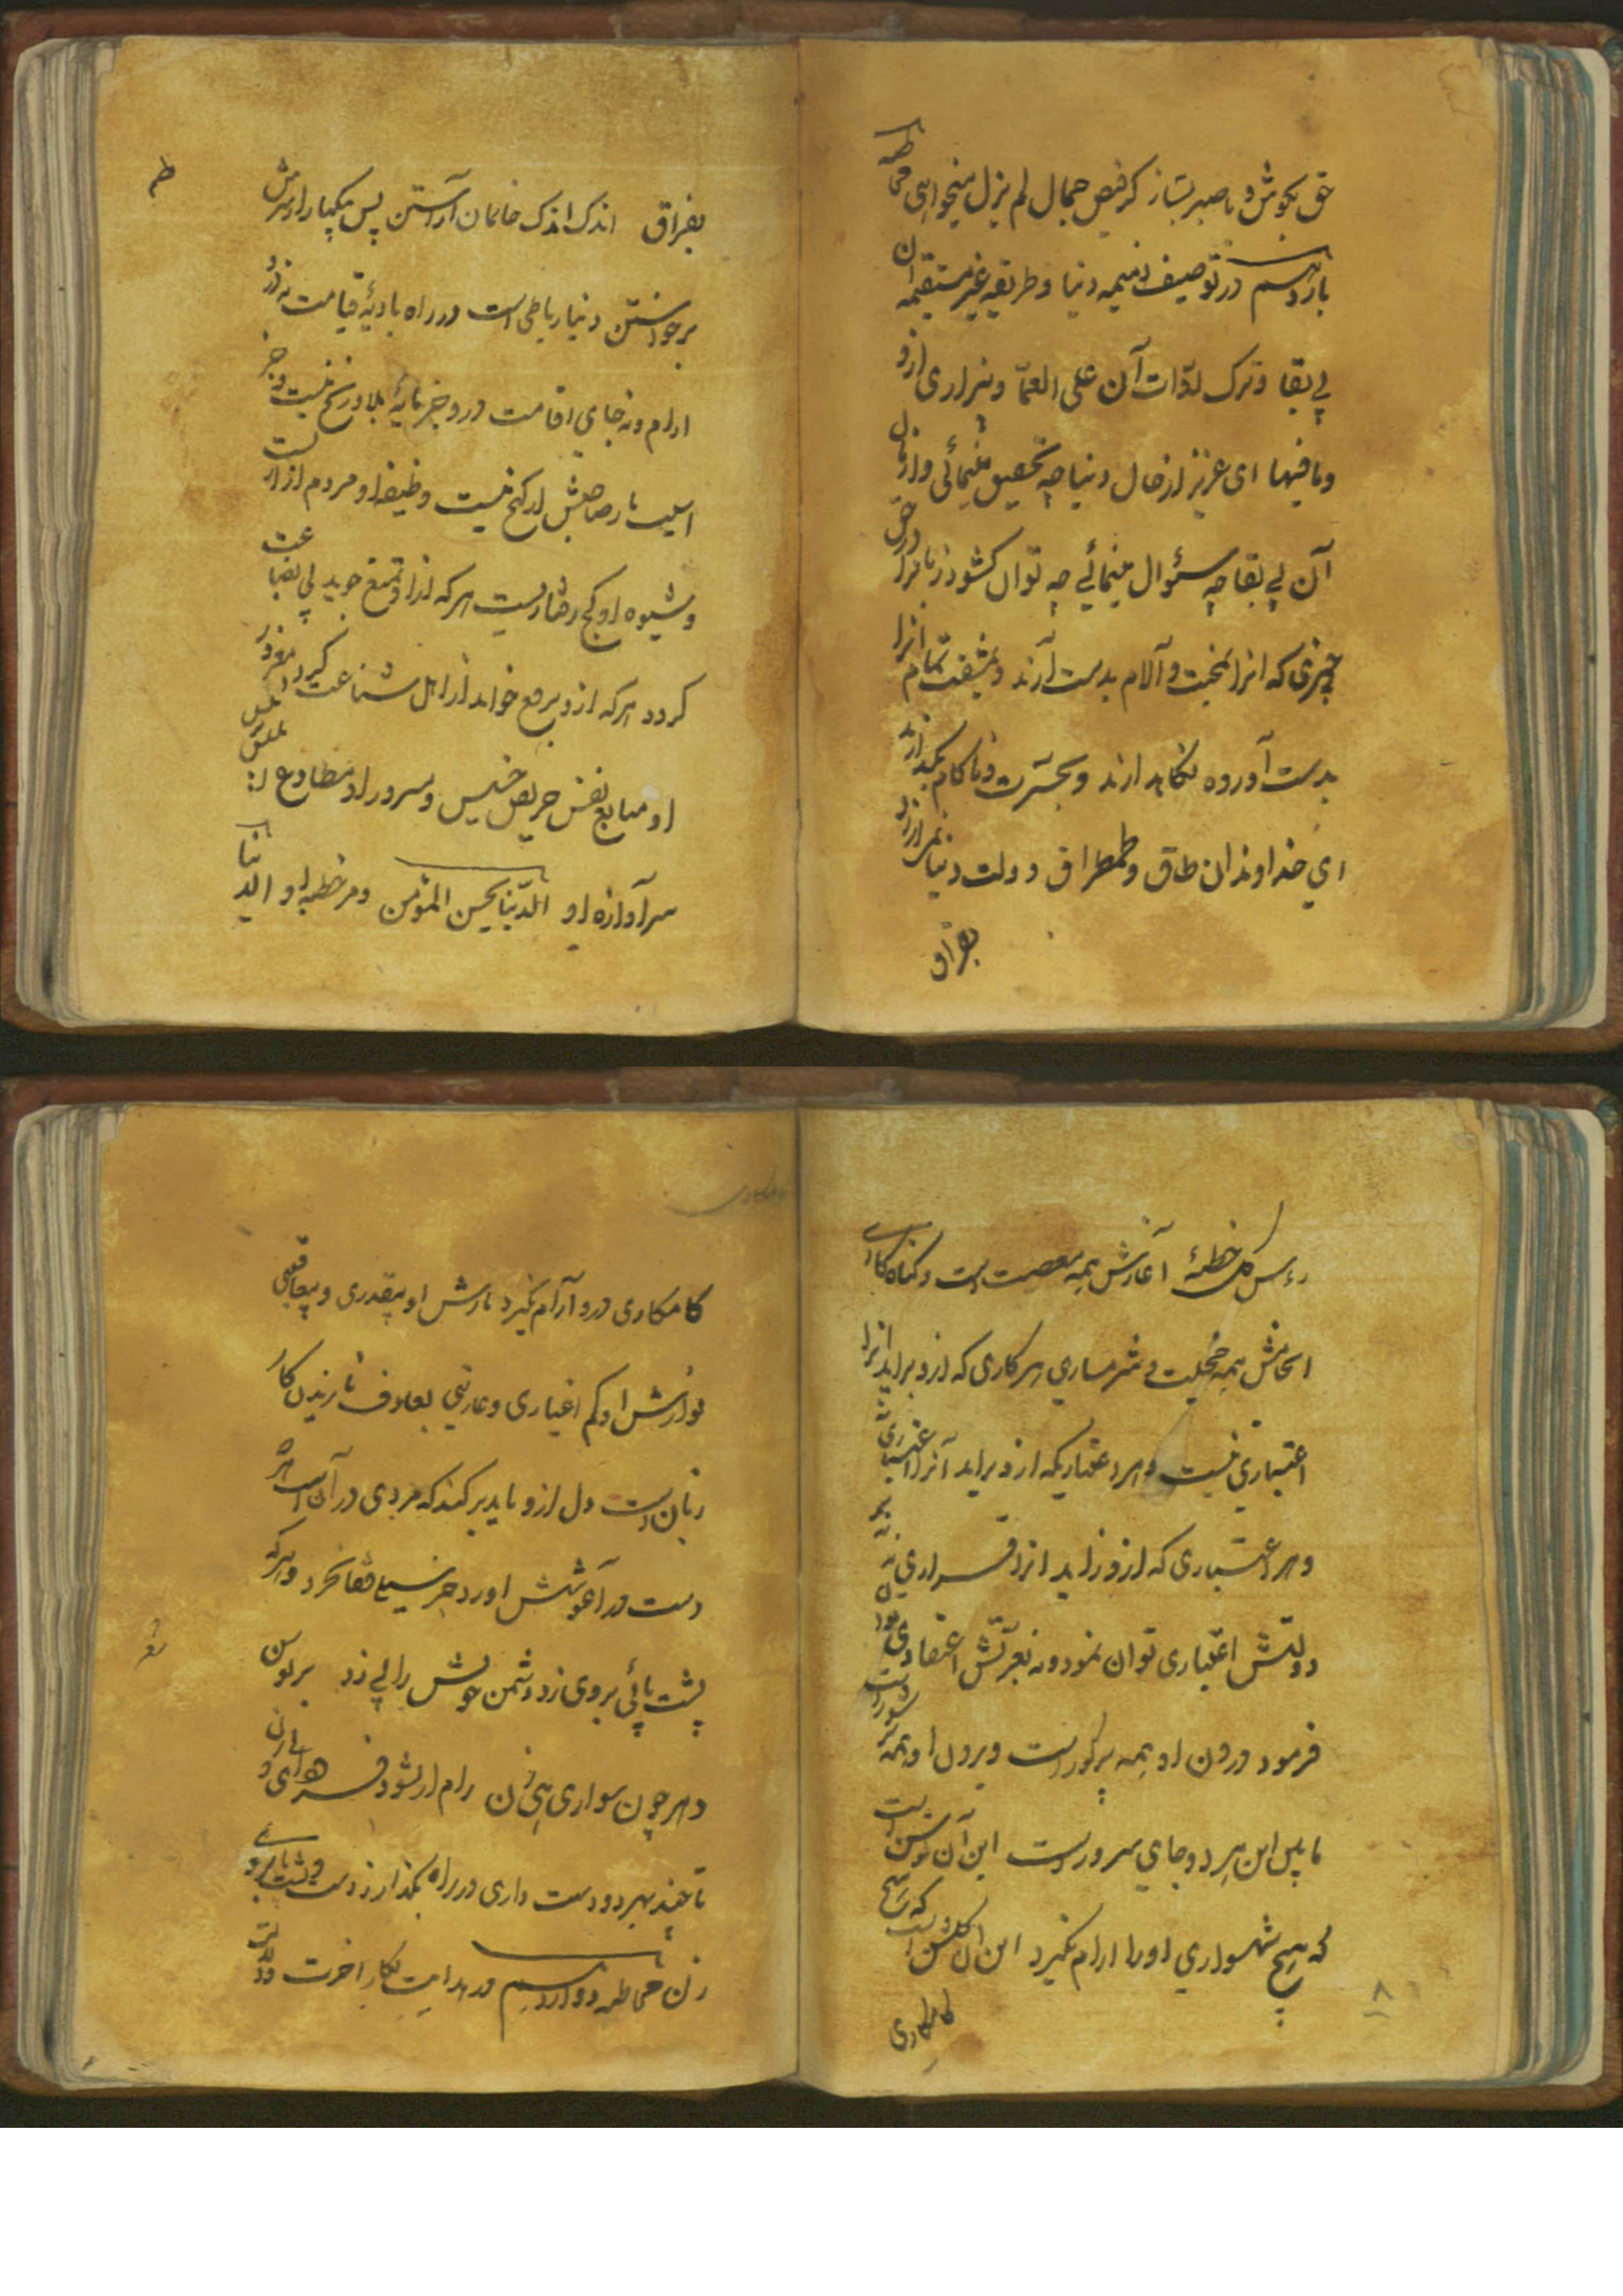 حق بکوش و با صبر بساز کر فیض جمال لم یزل میخواهی مخاطبه
یازدهم در توصیف ذمیمه دنیا و طریقه غیر مستقیمه ان
بی بقا و ترک لذات آن علی العمّا و بیزاری ازو
وما فیها ای عزیز از حال دنیا چه تحقیق مینمائی و از مال
آن بی بقا چه سئوال مینمائی چه توان کشود زبان را در حق
چیزی که انرا بمحنت و آلام بدست آرند و بمشقت تمام انرا
بدست آورده نکاهدارند و بحسرت و ناکام بگذارند
ای خداوندان طاق و طمطراق دولت دنیا نمی ارزد
بفراق
بفراق اندک اندک خانمان آراستن پس یکبار از سرش
برخواستن دنیا رباطی است در راه بادیهٔ قیامت نه در
ارام و نه جای اقامت درو جز مایهٔ بلا و رنج نیست و جز
اسیب مار صاحبش از کنج نیست وظیفه او مردم ازاریست
و شیوه او کج رفتاریست هر که ازو تمتع جوید بی بضاعت
کردد هر که ازو برمع خواهد از اهل شناعت کردد مغرور
او متابع نفس حریص خسیس و مسرور او مطاوع ابلیس
سرآوازه او الدّنیا سجن المؤمن و سر خطبه او الدنیا
رءس کل خطیئة آغازش همه معصیت است و کناه کاری
انجامش همه خجلت و شرمساری هر کاری که ازو براید انرا
اعتباری نیست و هر اعتباریکه ازو براید آنرا اعتباری نه
و هر اعتباری که ازو زاید انرا قراری نه
دولتش اعتباری توان نمود و نه بعزتش اعتمادی توان
فرمود درون او همه پر کور است و برون او همه پر شور است
مابین این هر دو جای سرور است این آن توسن است
که هیچ شهسواری او را ارام نکیرد این آن کلشن است که هیچ
کامکاری
کامکاری درو آرام نکیرد نازش او بیقدری و بیعاقبتی
نوازش او کم اعتباری و عاریتی بعلاوف نازیدن کار
زنان است دل ازو باید بر کند که مردی در آن است هر که
دست در آغوشش اورد جز سیلی قفا نخورد و هر که
پشت پائی بروی زد دشمن خویش را پی زد بر توسن
دهر چون سواری هی زن رام ار نشود
تا چند بهر دو دست داری در راه بکذار ز دست و پشت پای برو
زن مخاطبه دوازدهم در هدایت بکار اخرت و لذت